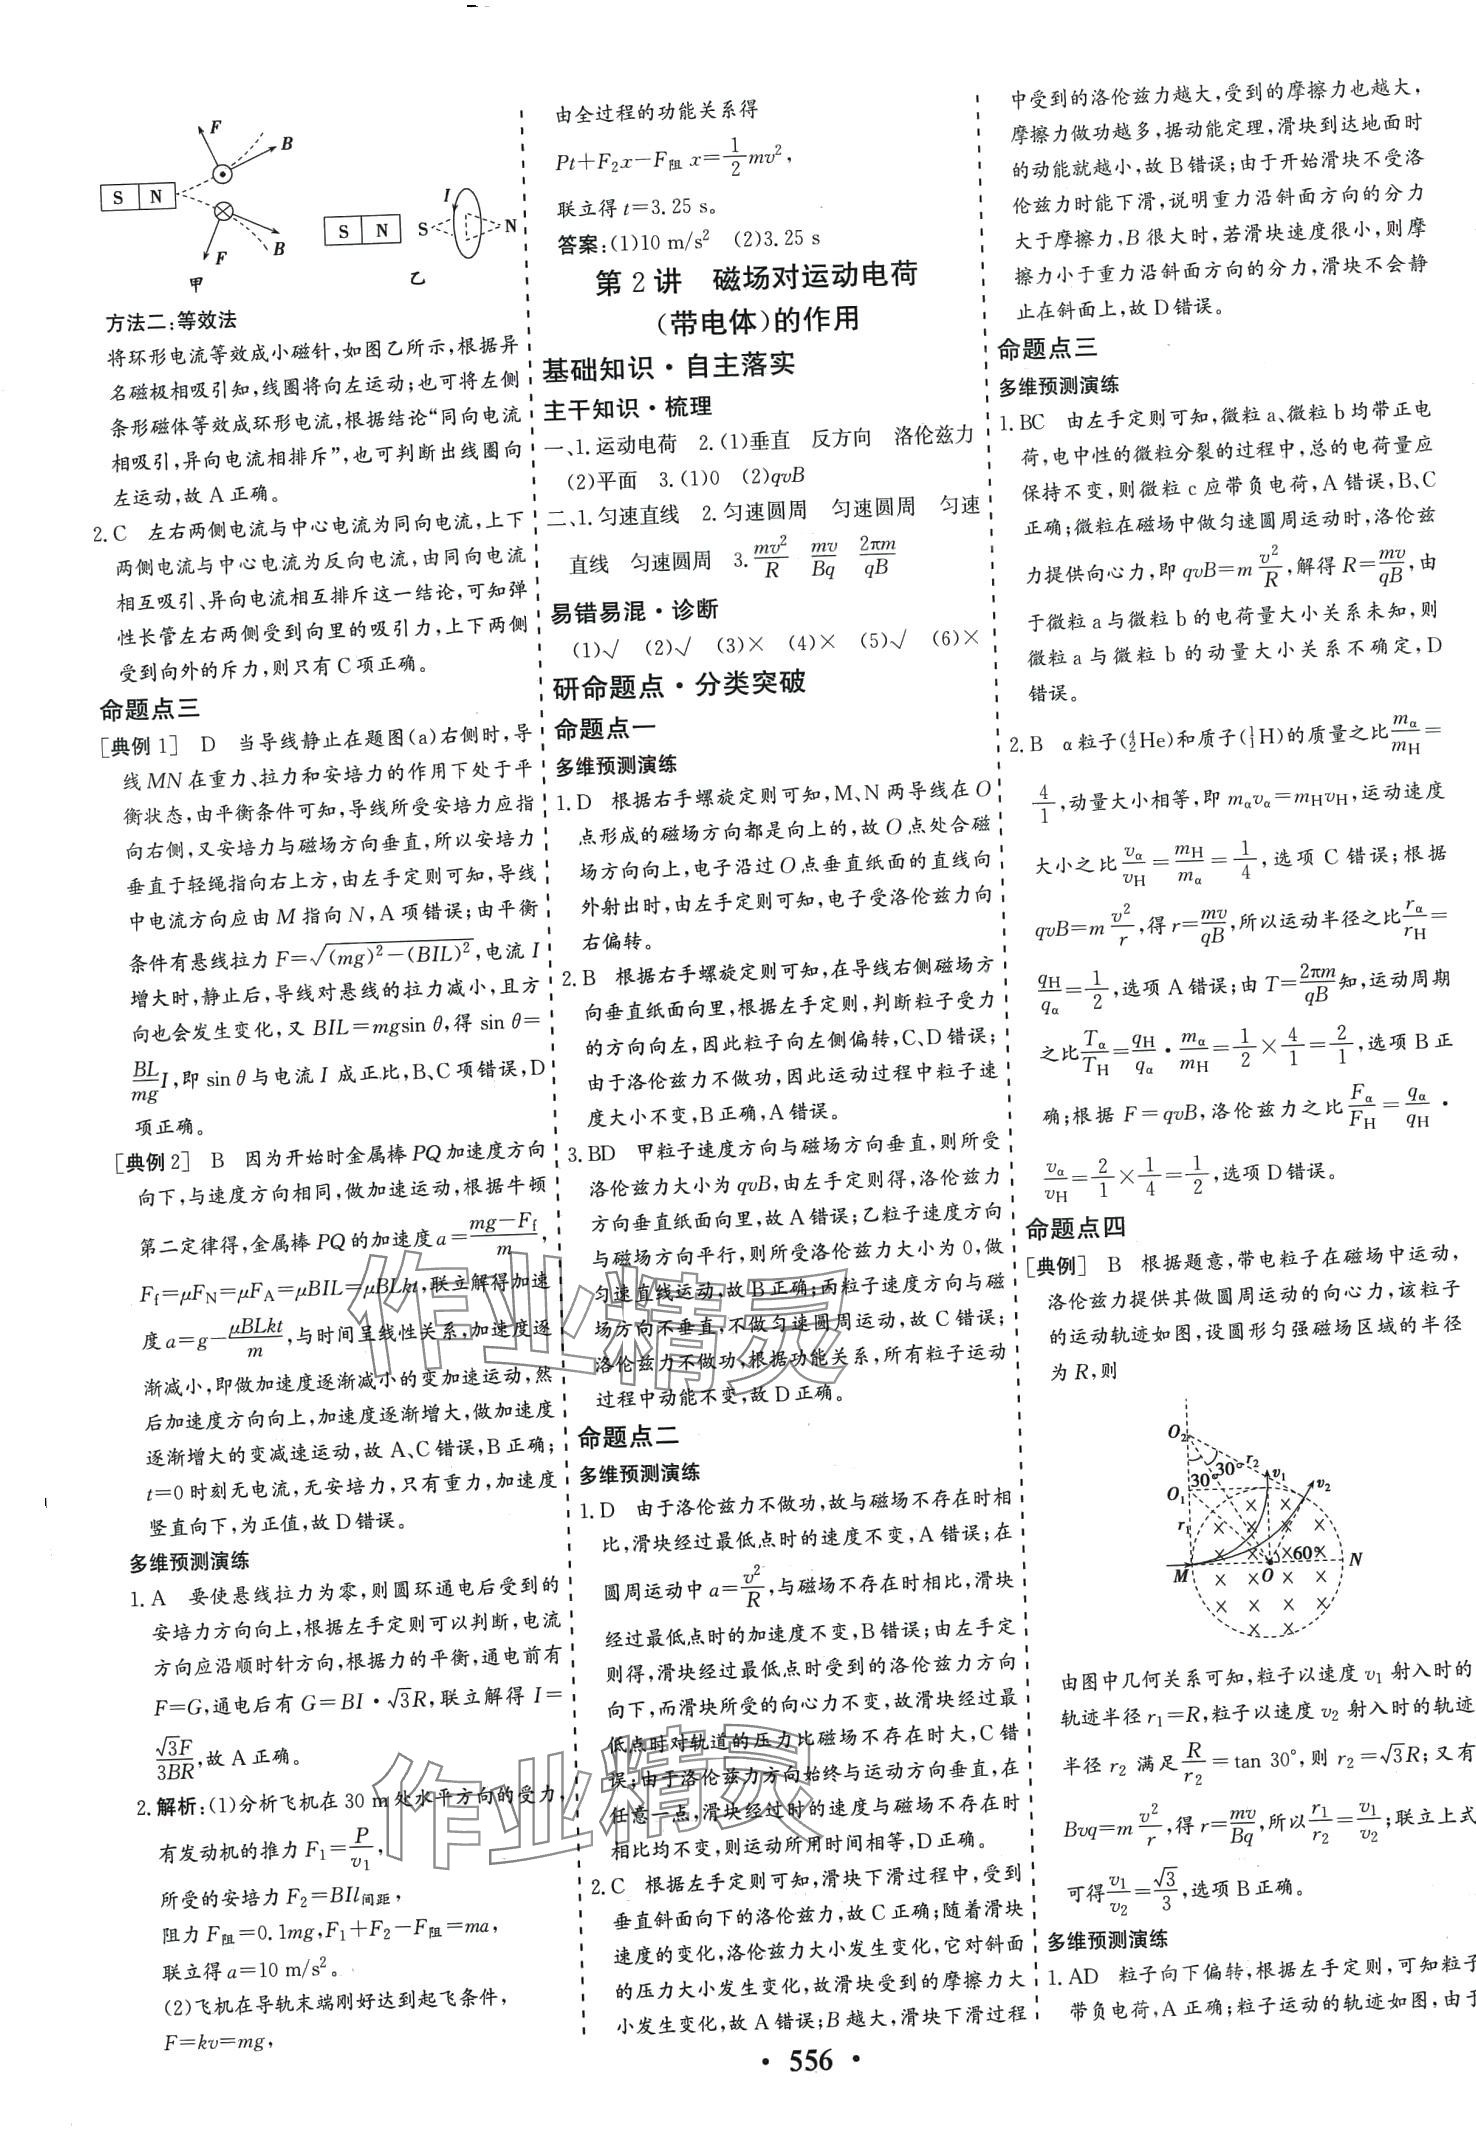 F
B
S N
F
B
甲
I
S N
S
N
乙
方法二:等效法
将环形电流等效成小磁针,如图乙所示,根据异
名磁极相吸引知,线圈将向左运动;也可将左侧
条形磁体等效成环形电流,根据结论“同向电流
相吸引,异向电流相排斥”,也可判断出线圈向
左运动,故 A 正确。
2. C 左右两侧电流与中心电流为同向电流,上下
两侧电流与中心电流为反向电流,由同向电流
相互吸引、异向电流相互排斥这一结论,可知弹
性长管左右两侧受到向里的吸引力,上下两侧
受到向外的斥力,则只有 C 项正确。
命题点三
[典例 1] D 当导线静止在题图(a)右侧时,导
线 MN 在重力、拉力和安培力的作用下处于平
衡状态,由平衡条件可知,导线所受安培力应指
向右侧,又安培力与磁场方向垂直,所以安培力
垂直于轻绳指向右上方,由左手定则可知,导线
中电流方向应由 M 指向 N,A 项错误;由平衡
条件有悬线拉力 F=√(mg)²−(BIL)²,电流 I
增大时,静止后,导线对悬线的拉力减小,且方
向也会发生变化,又 BIL=mgsin θ,得 sin θ=
BL/mg I,即 sin θ 与电流 I 成正比,B、C 项错误,D
项正确。
[典例 2] B 因为开始时金属棒 PQ 加速度方向
向下,与速度方向相同,做加速运动,根据牛顿
第二定律得,金属棒 PQ 的加速度 a=(mg−Ff)/m,
Ff=μFN=μFA=μBIL=μBLkt,联立解得加速
度 a=g−μBLkt/m,与时间呈线性关系,加速度逐
渐减小,即做加速度逐渐减小的变加速运动,然
后加速度方向向上,加速度逐渐增大,做加速度
逐渐增大的变减速运动,故 A、C 错误,B 正确;
t=0 时刻无电流,无安培力,只有重力,加速度
竖直向下,为正值,故 D 错误。
多维预测演练
1. A 要使悬线拉力为零,则圆环通电后受到的
安培力方向向上,根据左手定则可以判断,电流
方向应沿顺时针方向,根据力的平衡,通电前有
F=G,通电后有 G=BI·√3R,联立解得 I=
√3F/3BR,故 A 正确。
2. 解析:(1)分析飞机在 30 m 处水平方向的受力,
有发动机的推力 F₁=P/v₁,
所受的安培力 F₂=BIl间距,
阻力 F阻=0.1mg,F₁+F₂−F阻=ma,
联立得 a=10 m/s²。
(2)飞机在导轨末端刚好达到起飞条件,
F=kv=mg,
由全过程的功能关系得
Pt+F₂x−F阻x=1/2 mv²,
联立得 t=3.25 s。
答案:(1)10 m/s² (2)3.25 s
第 2 讲 磁场对运动电荷
(带电体)的作用
基础知识·自主落实
主干知识·梳理
一、1.运动电荷 2.(1)垂直 反方向 洛伦兹力
(2)平面 3.(1)0 (2)qvB
二、1.匀速直线 2.匀速圆周 匀速圆周 匀速
直线 匀速圆周 3. mv²/R mv/Bq 2πm/qB
易错易混·诊断
(1)√ (2)√ (3)× (4)× (5)√ (6)×
研命题点·分类突破
命题点一
多维预测演练
1. D 根据右手螺旋定则可知,M、N 两导线在 O
点形成的磁场方向都是向上的,故 O 点处合磁
场方向向上,电子沿过 O 点垂直纸面的直线向
外射出时,由左手定则可知,电子受洛伦兹力向
右偏转。
2. B 根据右手螺旋定则可知,在导线右侧磁场方
向垂直纸面向里,根据左手定则,判断粒子受力
的方向向左,因此粒子向左侧偏转,C、D 错误;
由于洛伦兹力不做功,因此运动过程中粒子速
度大小不变,B 正确,A 错误。
3. BD 甲粒子速度方向与磁场方向垂直,则所受
洛伦兹力大小为 qvB,由左手定则得,洛伦兹力
方向垂直纸面向里,故 A 错误;乙粒子速度方向
与磁场方向平行,则所受洛伦兹力大小为 0,做
匀速直线运动,故 B 正确;丙粒子速度方向与磁
场方向不垂直,不做匀速圆周运动,故 C 错误;
洛伦兹力不做功,根据功能关系,所有粒子运动
过程中动能不变,故 D 正确。
命题点二
多维预测演练
1. D 由于洛伦兹力不做功,故与磁场不存在时相
比,滑块经过最低点时的速度不变,A 错误;在
圆周运动中 a=v²/R,与磁场不存在时相比,滑块
经过最低点时的加速度不变,B 错误;由左手定
则得,滑块经过最低点时受到的洛伦兹力方向
向下,而滑块所受的向心力不变,故滑块经过最
低点时对轨道的压力比磁场不存在时大,C 错
误;由于洛伦兹力方向始终与运动方向垂直,在
任意一点,滑块经过时的速度与磁场不存在时
相比均不变,则运动所用时间相等,D 正确。
2. C 根据左手定则可知,滑块下滑过程中,受到
垂直斜面向下的洛伦兹力,故 C 正确;随着滑块
速度的变化,洛伦兹力大小发生变化,它对斜面
的压力大小发生变化,故滑块受到的摩擦力大
小发生变化,故 A 错误;B 越大,滑块下滑过程
中受到的洛伦兹力越大,受到的摩擦力也越大,
摩擦力做功越多,据动能定理,滑块到达地面时
的动能就越小,故 B 错误;由于开始滑块不受洛
伦兹力时能下滑,说明重力沿斜面方向的分力
大于摩擦力,B 很大时,若滑块速度很小,则摩
擦力小于重力沿斜面方向的分力,滑块不会静
止在斜面上,故 D 错误。
命题点三
多维预测演练
1. BC 由左手定则可知,微粒 a、微粒 b 均带正电
荷,电中性的微粒分裂的过程中,总的电荷量应
保持不变,则微粒 c 应带负电荷,A 错误,B、C
正确;微粒在磁场中做匀速圆周运动时,洛伦兹
力提供向心力,即 qvB=m v²/R,解得 R=mv/qB,由
于微粒 a 与微粒 b 的电荷量大小关系未知,则
微粒 a 与微粒 b 的动量大小关系不确定,D
错误。
2. B α 粒子(⁴₂He)和质子(¹₁H)的质量之比 mα/mH=
4/1,动量大小相等,即 mαvα=mHvH,运动速度
大小之比 vα/vH=mH/mα=1/4,选项 C 错误;根据
qvB=m v²/r,得 r=mv/qB,所以运动半径之比 rα/rH=
qH/qα=1/2,选项 A 错误;由 T=2πm/qB 知,运动周期
之比 Tα/TH=qH/qα·mα/mH=1/2×4/1=2/1,选项 B 正
确;根据 F=qvB,洛伦兹力之比 Fα/FH=qα/qH·
vα/vH=2/1×1/4=1/2,选项 D 错误。
命题点四
[典例] B 根据题意,带电粒子在磁场中运动,
洛伦兹力提供其做圆周运动的向心力,该粒子
的运动轨迹如图,设圆形匀强磁场区域的半径
为 R,则
O₂
30° 30° r₂ v₁ v₂
O₁
r₁
60°
M O N
由图中几何关系可知,粒子以速度 v₁ 射入时的
轨迹半径 r₁=R,粒子以速度 v₂ 射入时的轨迹
半径 r₂ 满足 R/r₂=tan 30°,则 r₂=√3R;又有
Bvq=m v²/r,得 r=mv/Bq,所以 r₁/r₂=v₁/v₂;联立上式
可得 v₁/v₂=√3/3,选项 B 正确。
多维预测演练
1. AD 粒子向下偏转,根据左手定则,可知粒子
带负电荷,A 正确;粒子运动的轨迹如图,由于
· 556 ·
作业精灵
作业精灵